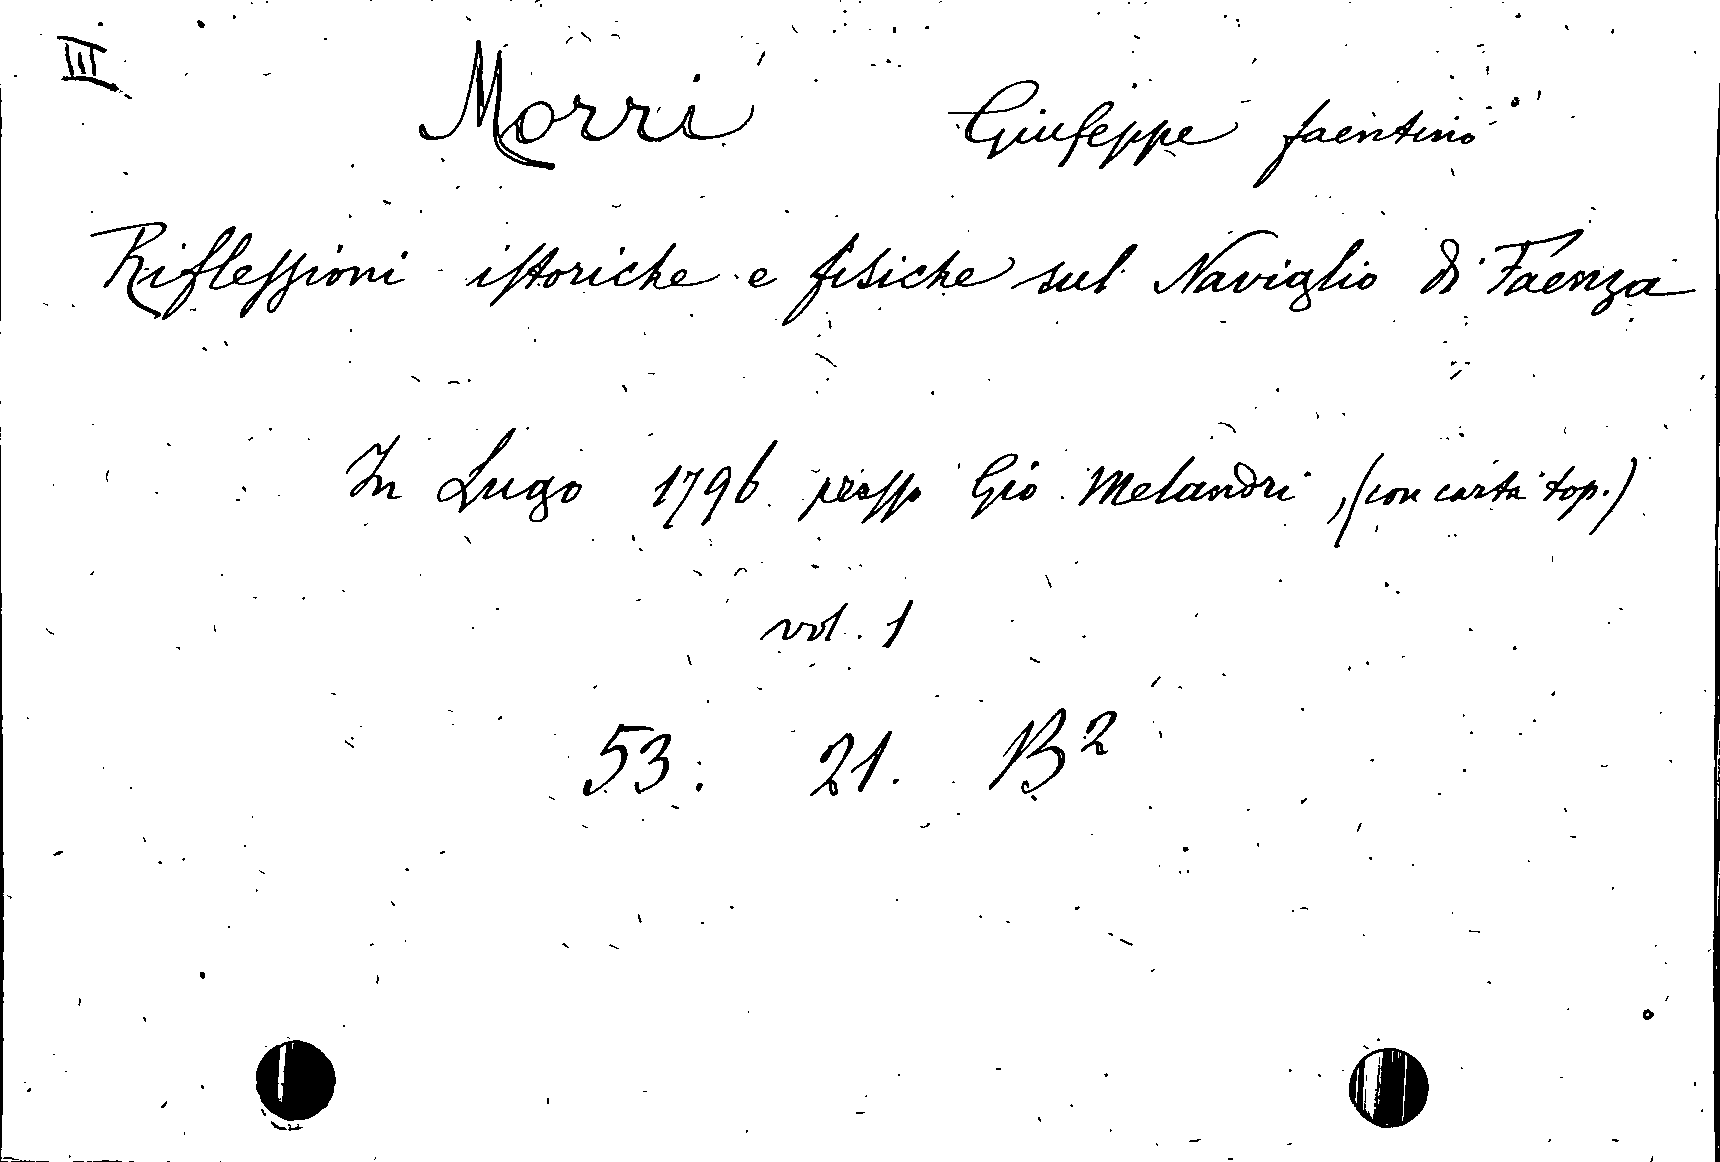 III
Morri Giuseppe faentino
Riflessioni istoriche e fisiche sul Naviglio di Faenza
In Lugo 1796 presso Gio Melandri, (con carta top.)
vol. 1
53. 21. B²